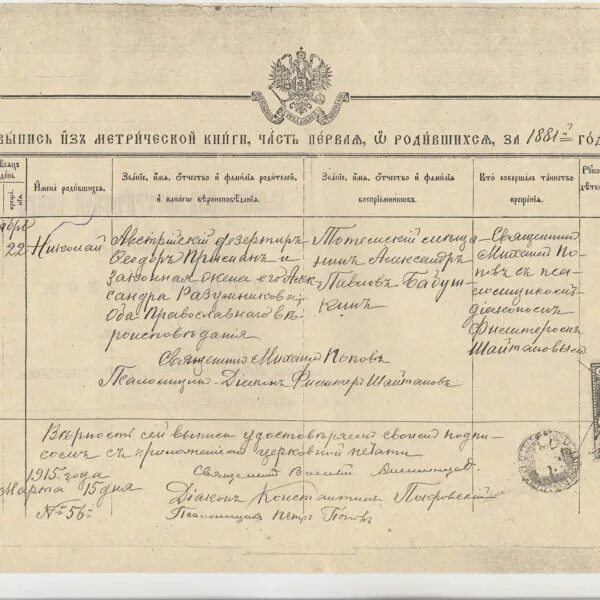 ВЫПИСЬ ИЗЪ МЕТРИЧЕСКОЙ КНИГИ, ЧАСТЬ ПЕРВАЯ, Ѡ РОДИВШИХСЯ, ЗА 1881й ГОД
день
Имена родившихся.
Званіе, имя, отчество и фамилія родителей,
и какого вѣроисповѣданія.
Званіе, имя, отчество и фамилія
воспріемниковъ.
Кто совершалъ таинство
крещенія.
22
Николай
Австрійскій дезертиръ
Ѳеодоръ и
законная жена его Алек
сандра Разумникова,
оба Православнаго вѣ
роисповѣданія
Тотемскій мѣща
нинъ Александръ
Павловъ Бабуш
кинъ
Священникъ
Михаилъ По
повъ съ пса
ломщикомъ
діакономъ
Шайтановымъ
Священникъ Михаилъ Поповъ
Псаломщикъ-Діаконъ Шайтановъ
Вѣрность сей выписи удостовѣряемъ своей подпи
сомъ съ приложеніемъ церковной печати
1915 года
Марта 15 дня
№ 56
Священникъ Василій
Діаконъ Константинъ Покровскій
Псаломщикъ Петръ Поповъ